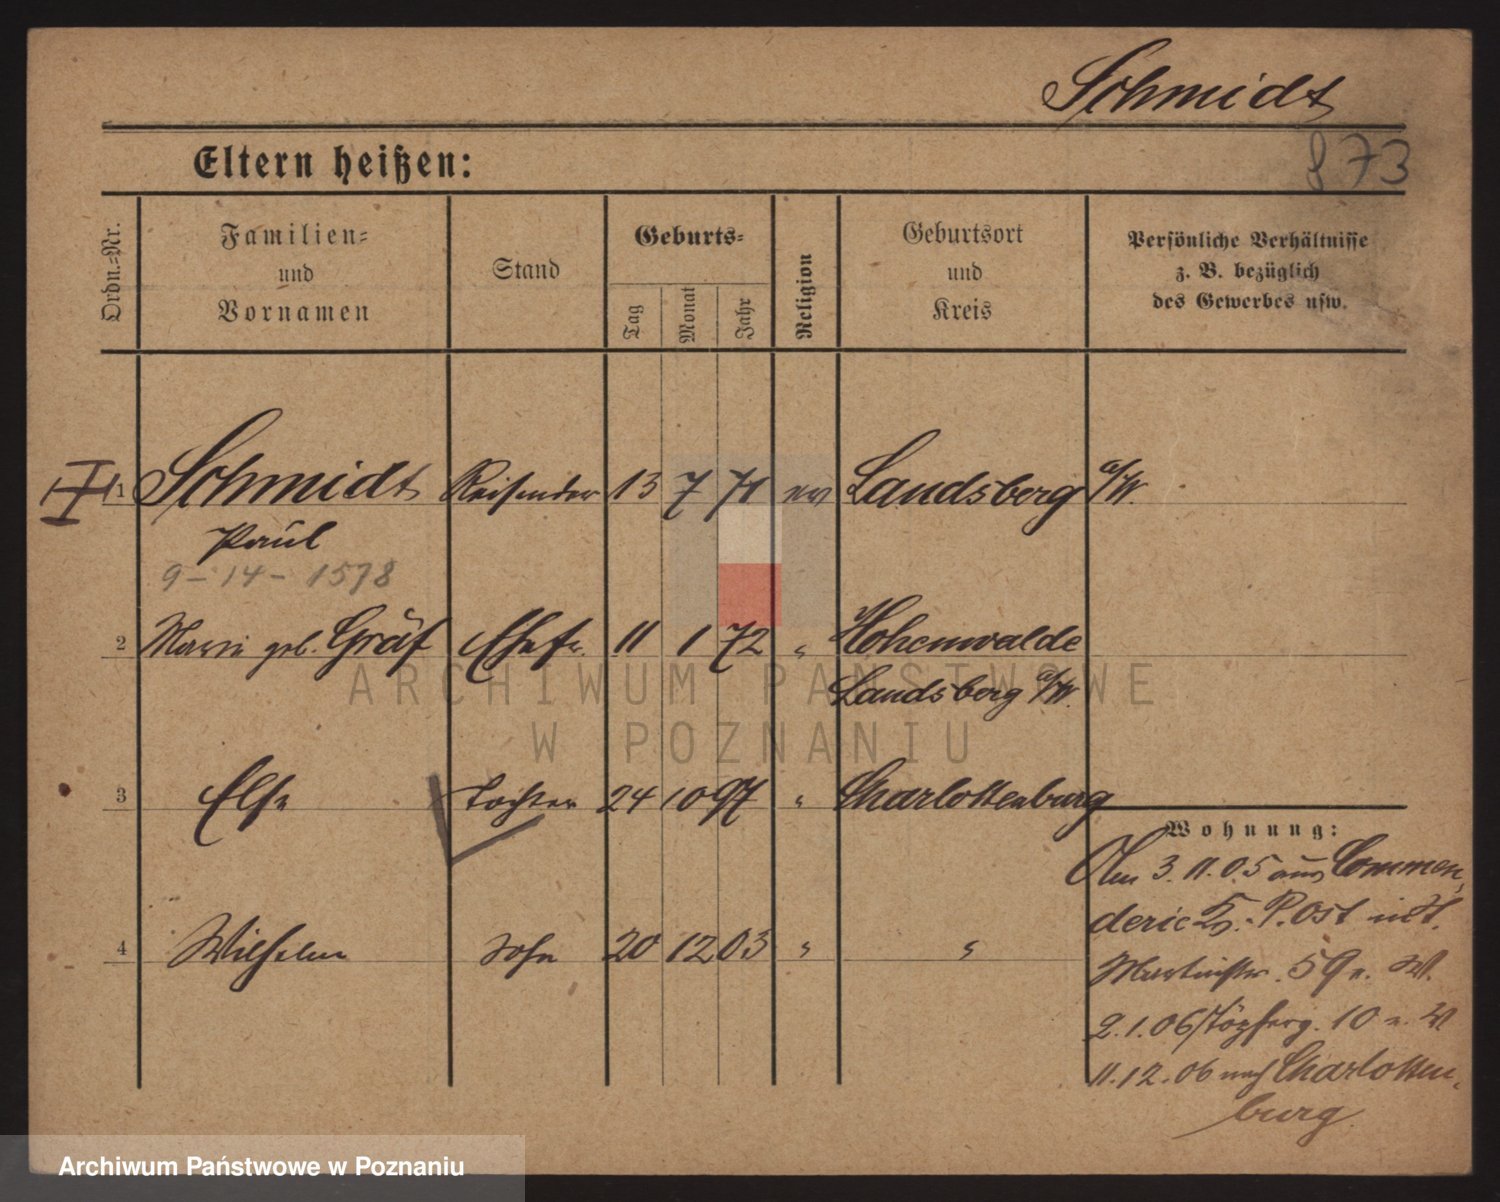 Schmidt
Eltern heißen:
873
Ordn.-Nr.
Familien-
und
Vornamen
Stand
Geburts-
Tag
Monat
Jahr
Religion
Geburtsort
und
Kreis
Persönliche Verhältnisse
z. B. bezüglich
des Gewerbes usw.
1 Schmidt Reisender 13 7 71 ev Landsberg a/W.
Paul
9-14-1578
2 Marie geb. Gräf Ehefr. 11 1 72 " Hohenwalde
Landsberg a/W.
3 Else Tochter 24 10 97 " Charlottenburg
Wohnung:
3.11.05 aus Commen-
derie P. Ost
4 Wilhelm Sohn 20 12 03 " "
Martinstr. 59
2.1.06 Töpferg. 10
11.12.06 nach Charlotten-
burg
ARCHIWUM PAŃSTWOWE
W POZNANIU
Archiwum Państwowe w Poznaniu